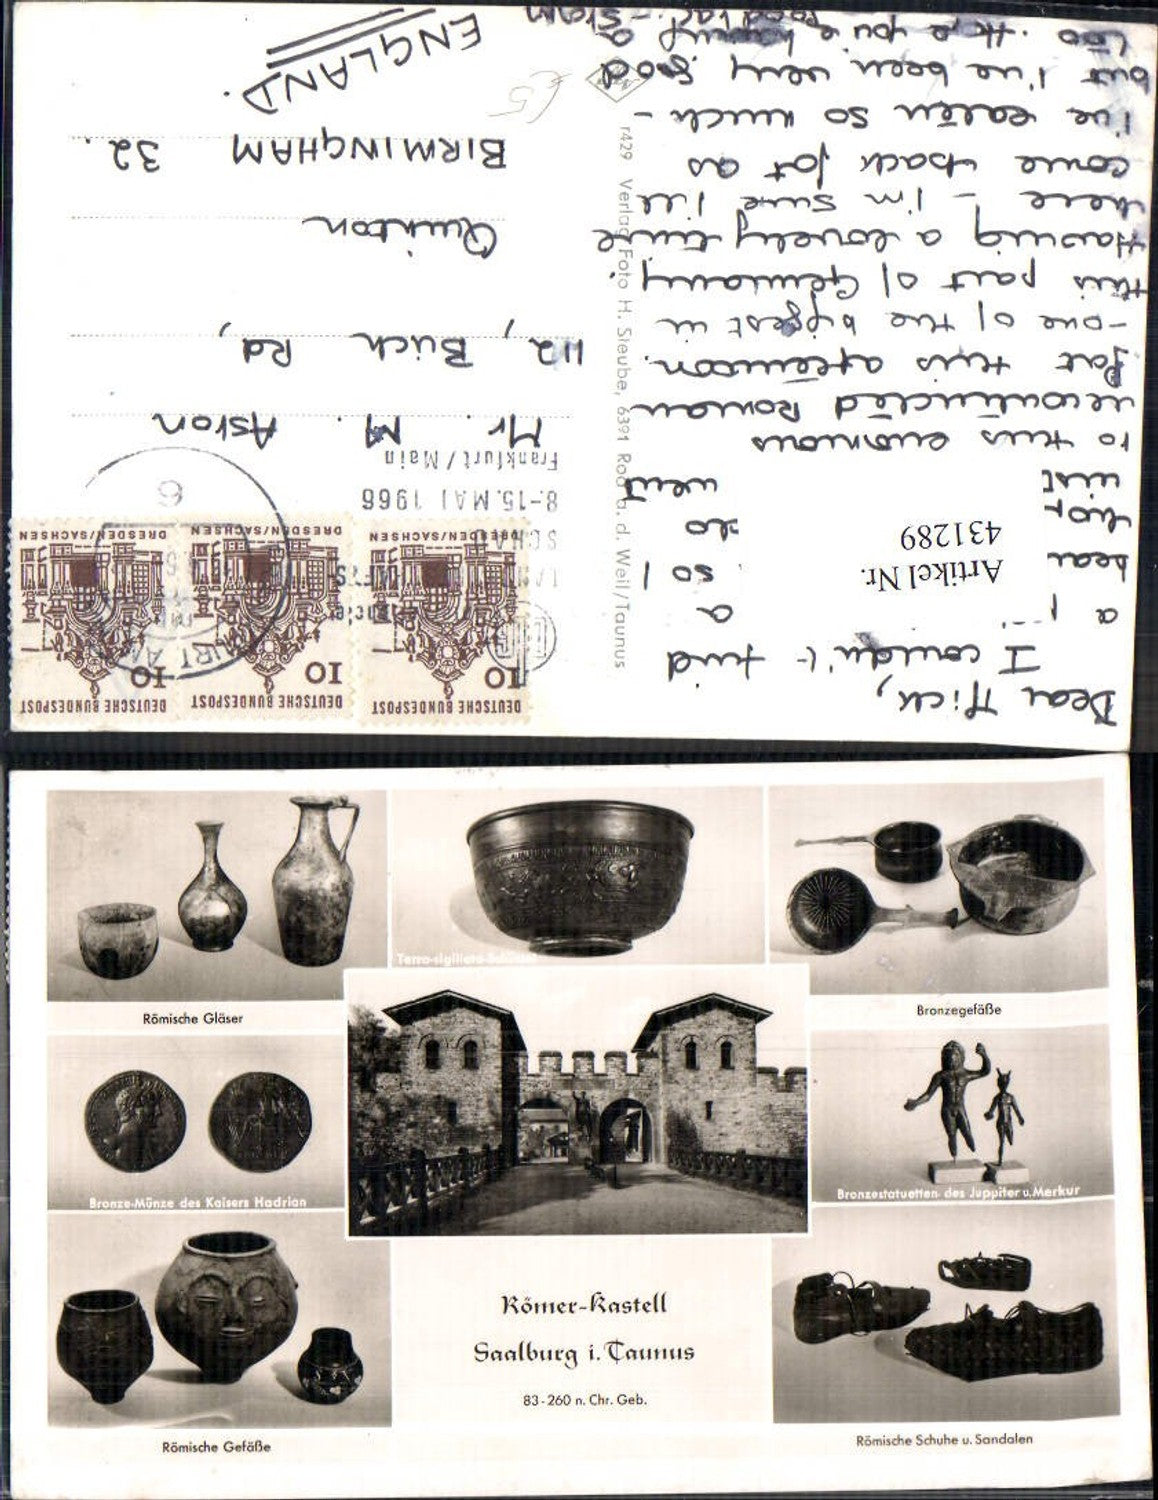 Dear Mick,
I couldn't find
a p a
bear so I
hop do
inst went
to this enormous
reconstructed Roman
Fort this afternoon.
- one of the biggest in
this part of Germany.
Having a lovely time
here - I'm sure I'll
come back fat as
I've eaten so much -
but I've been very good
too. Hope you're having a
good
Artikel Nr.
431289
r429 Verlag Foto H. Sleube, 6391 Rod a. d. Weil/Taunus
£5
DEUTSCHE BUNDESPOST
10
DRESDEN/SACHSEN
DEUTSCHE BUNDESPOST
10
DRESDEN/SACHSEN
DEUTSCHE BUNDESPOST
10
DRESDEN/SACHSEN
6
8.-15. MAI 1966
Frankfurt/Main
Mr. M. Aston
112, Birch Rd,
Quinton
BIRMINGHAM 32.
ENGLAND.
Römische Gläser
Terra-sigillata-Schüssel
Bronzegefäße
Bronze-Münze des Kaisers Hadrian
Bronzestatuetten des Juppiter u. Merkur
Römer-Kastell
Saalburg i. Taunus
83-260 n. Chr. Geb.
Römische Gefäße
Römische Schuhe u. Sandalen